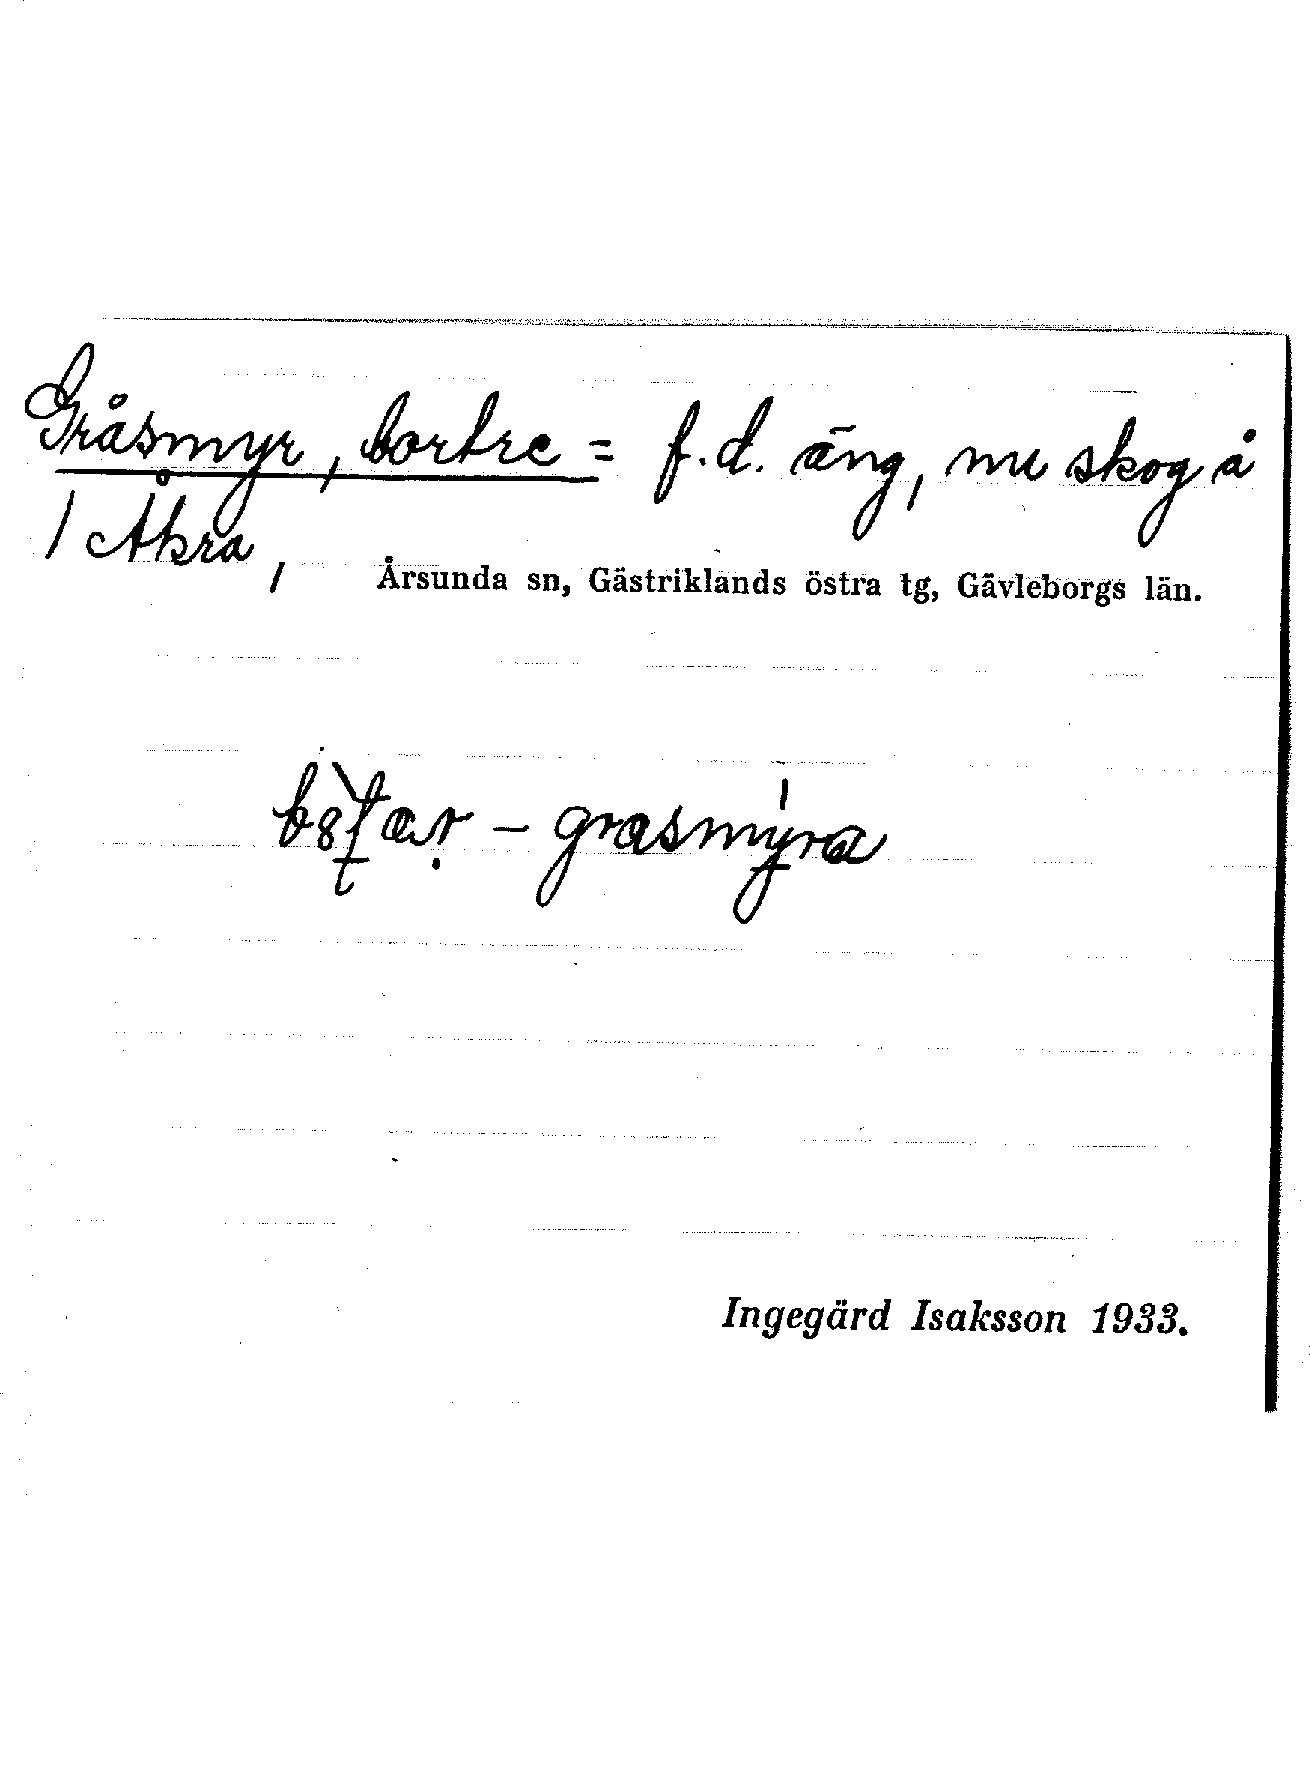 Gråsmyr, bortre = f.d. äng, nu skog å
1 Åkra,
Årsunda sn, Gästriklands östra tg, Gävleborgs län.
grasmýra
Ingegärd Isaksson 1933.